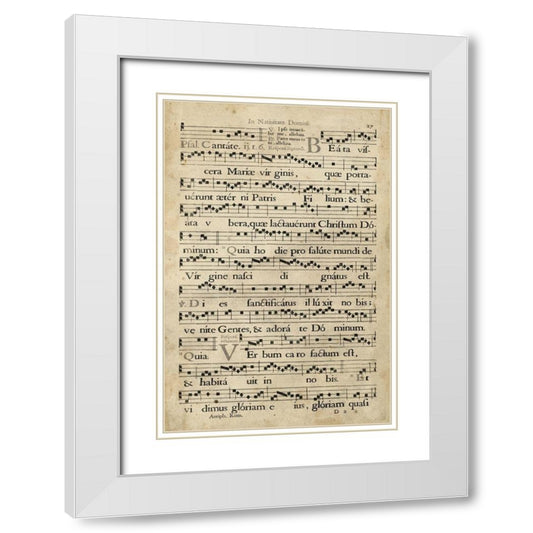 In Nativitate Domini. 27
Psal. Cantáte. BEáta vis-
cera Mariæ vir ginis, quæ porta-
uérunt ætér ni Patris Fi lium: & be-
áta v bera, quæ lactauérunt Christum Dó-
minum: Quia ho die pro salúte mundi de
Vir gine nasci di gnátus est.
℣. Di es sanctificátus il lú xit no bis:
ve níte Gentes, & adorá te Dó minum.
Quia. VEr bum ca ro factum est,
& habitá uit in no bis. Et
vi dimus glóriam e ius, glóriam quasi
Antiph. Rom.